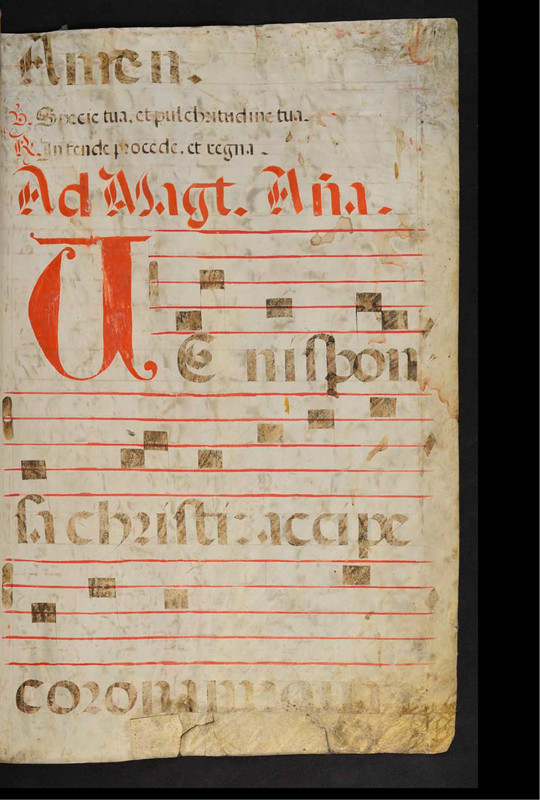 Amen.
V. Specie tua, et pulchritudine tua.
R. Intende procede. et regna.
Ad Magt. Aña.
VE ni spon
sa christi: accipe
coronam